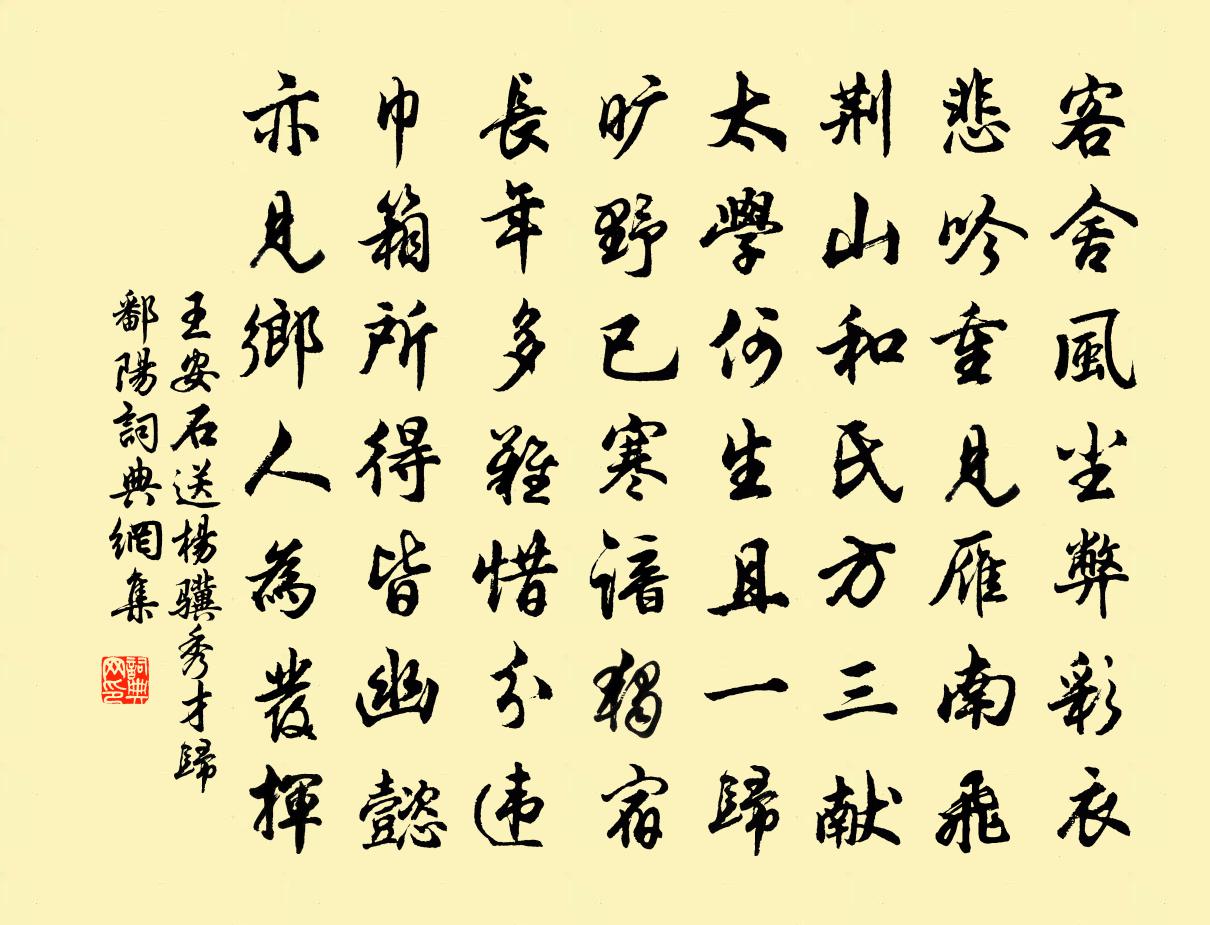 客舍風尘弊彩衣
悲吟重見雁南飛
荆山和氏方三献
太學何生且一歸
旷野已寒谙獨宿
長年多難惜分违
巾箱所得皆幽懿
亦見鄉人為發揮
王安石送楊驥秀才歸
鄱陽詞典網集
詞典网印